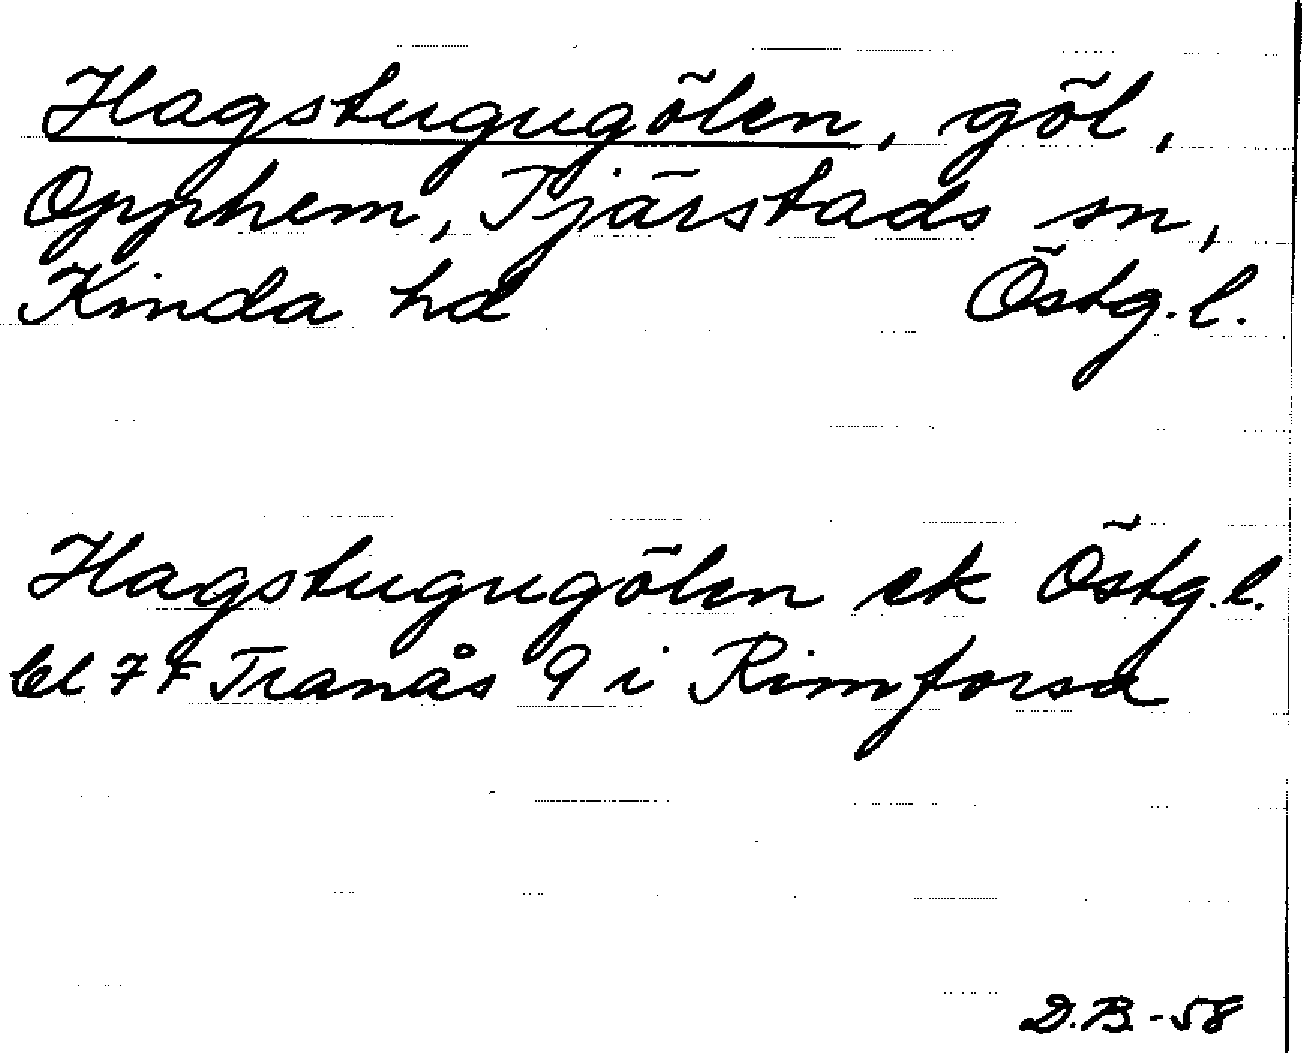 Hagstugugölen, göl,
Opphem, Tjärstads sn,
Kinda hd Östg.l.
Hagstugugölen ek Östg.l.
bl 7 F Tranås 9 i Rimforsa
D.B. -58